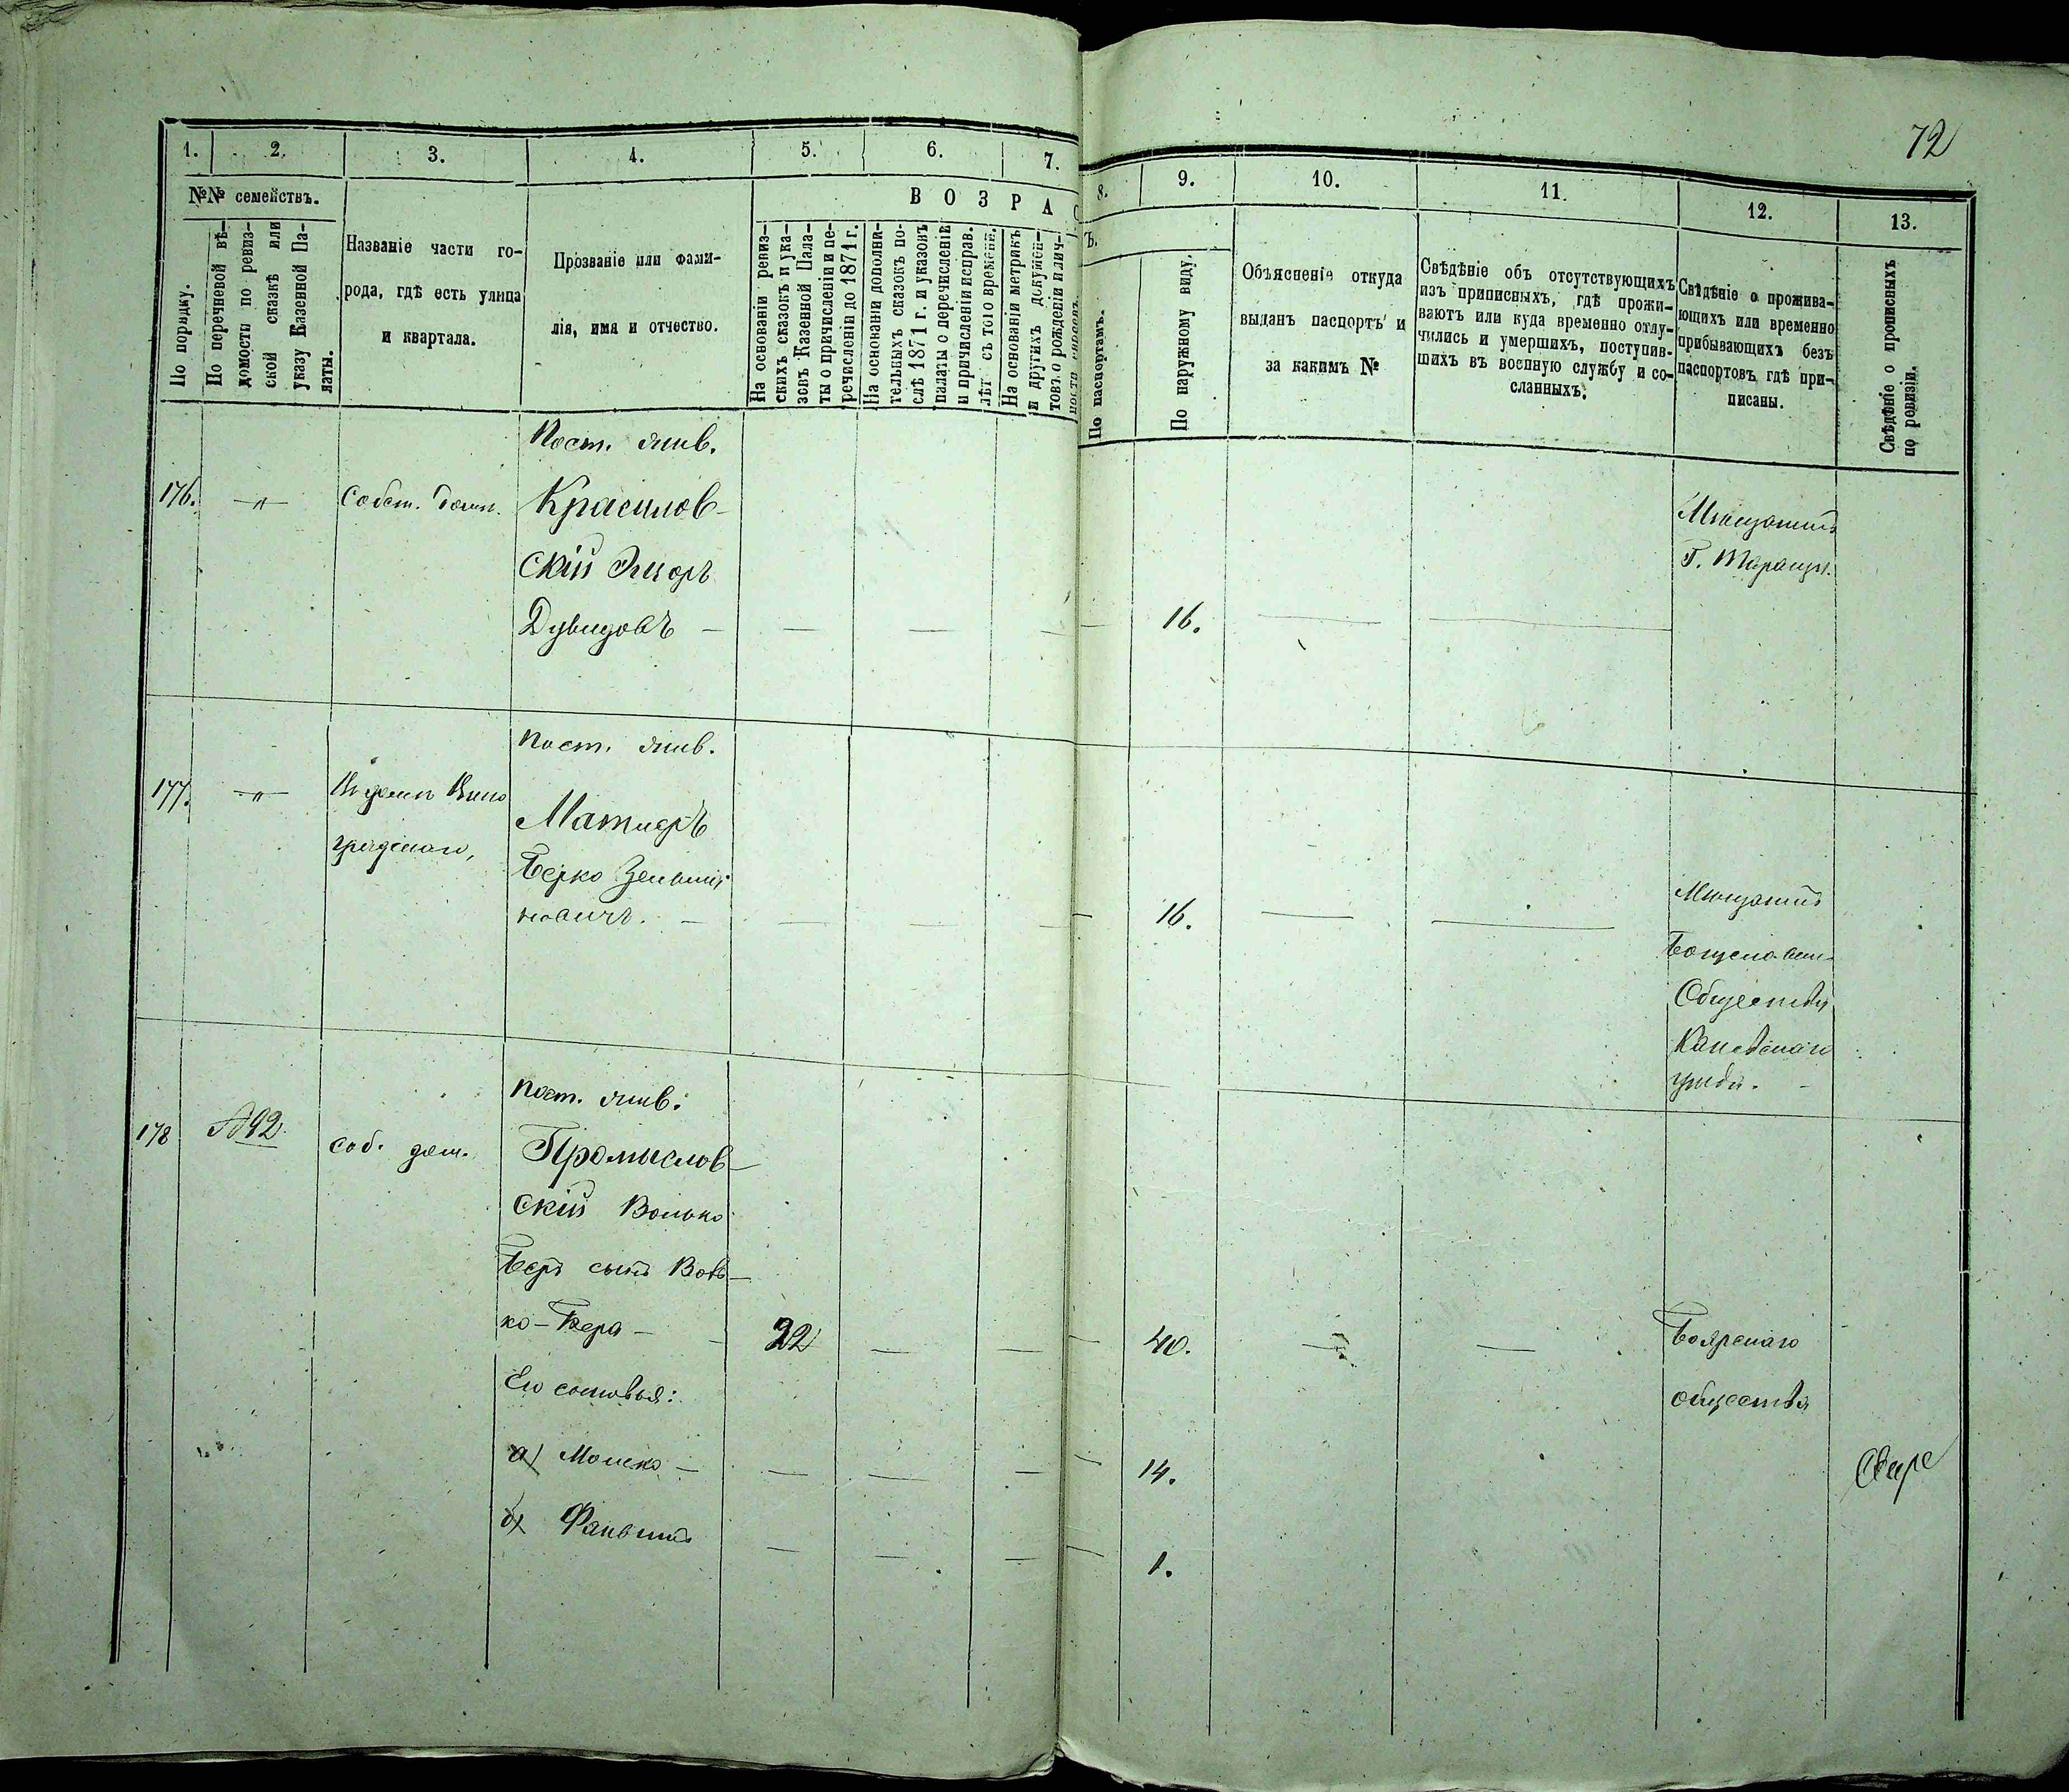 72
1. 2. 3. 4. 5. 6. 7. 8. 9. 10. 11. 12. 13.
№№ семействъ.
По порядку.
По перечневой вѣ-
домости по ревиз-
ской сказкѣ или
указу Казенной Па-
латы.
Названіе части го-
рода, гдѣ есть улица
и квартала.
Прозваніе или фами-
лія, имя и отчество.
ВОЗРАС
Ъ.
На основаніи ревиз-
скихъ сказокъ и ука-
зовъ Казенной Пала-
ты о причисленіи и пе-
речисленіи до 1871 г.
На основаніи дополни-
тельныхъ сказокъ по-
слѣ 1871 г. и указовъ
палаты о перечисленіи
и причисленіи исправ.
лѣт съ того времени.
На основаніи метрикъ
и другихъ докумен-
товъ о рожденіи и лич-
По паспортамъ.
По наружному виду.
Объясненіе откуда
выданъ паспортъ и
за какимъ №
Свѣдѣніе объ отсутствующихъ
изъ приписныхъ, гдѣ прожи-
ваютъ или куда временно отлу-
чились и умершихъ, поступив-
шихъ въ военную службу и со-
сланныхъ.
Свѣдѣніе о прожива-
ющихъ или временно
прибывающихъ безъ
паспортовъ гдѣ при-
писаны.
Свѣдѣніе о прописныхъ
по ревизіи.
Пост. жив.
176. —"— Собст. домъ. Красилов-
скій
Дувидовъ — — — — — 16. — —
Мѣщанинъ
Г. Таращи.
Пост. жив.
177. —"—
Матиеръ
Берко
новичъ. — — — — — 16. — —
Мѣщанинъ
Богуславск.
Общества
Каневскаго
уѣзда. —
Пост. жив.
178 №92. соб. дом. Промыслов-
скій Волько
Беръ сынъ Воль-
ко-Бера — — 22 — — — 40. — —
Боярскаго
общества
Его сыновья:
а) Мошко — — — — — 14.
б) — — — — 1.